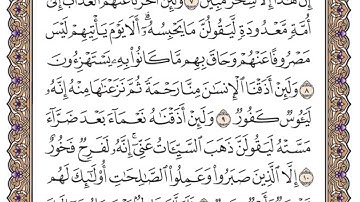 إِنْ هَٰذَآ إِلَّا سِحْرٌ مُّبِينٌ ٧ وَلَئِنْ أَخَّرْنَا عَنْهُمُ ٱلْعَذَابَ إِلَىٰٓ
أُمَّةٍ مَّعْدُودَةٍ لَّيَقُولُنَّ مَا يَحْبِسُهُۥٓ ۗ أَلَا يَوْمَ يَأْتِيهِمْ لَيْسَ
مَصْرُوفًا عَنْهُمْ وَحَاقَ بِهِم مَّا كَانُوا۟ بِهِۦ يَسْتَهْزِءُونَ
٨ وَلَئِنْ أَذَقْنَا ٱلْإِنسَٰنَ مِنَّا رَحْمَةً ثُمَّ نَزَعْنَٰهَا مِنْهُ إِنَّهُۥ
لَيَـُٔوسٌ كَفُورٌ ٩ وَلَئِنْ أَذَقْنَٰهُ نَعْمَآءَ بَعْدَ ضَرَّآءَ
مَسَّتْهُ لَيَقُولَنَّ ذَهَبَ ٱلسَّيِّـَٔاتُ عَنِّىٓ ۚ إِنَّهُۥ لَفَرِحٌ فَخُورٌ
١٠ إِلَّا ٱلَّذِينَ صَبَرُوا۟ وَعَمِلُوا۟ ٱلصَّٰلِحَٰتِ أُو۟لَٰٓئِكَ لَهُم